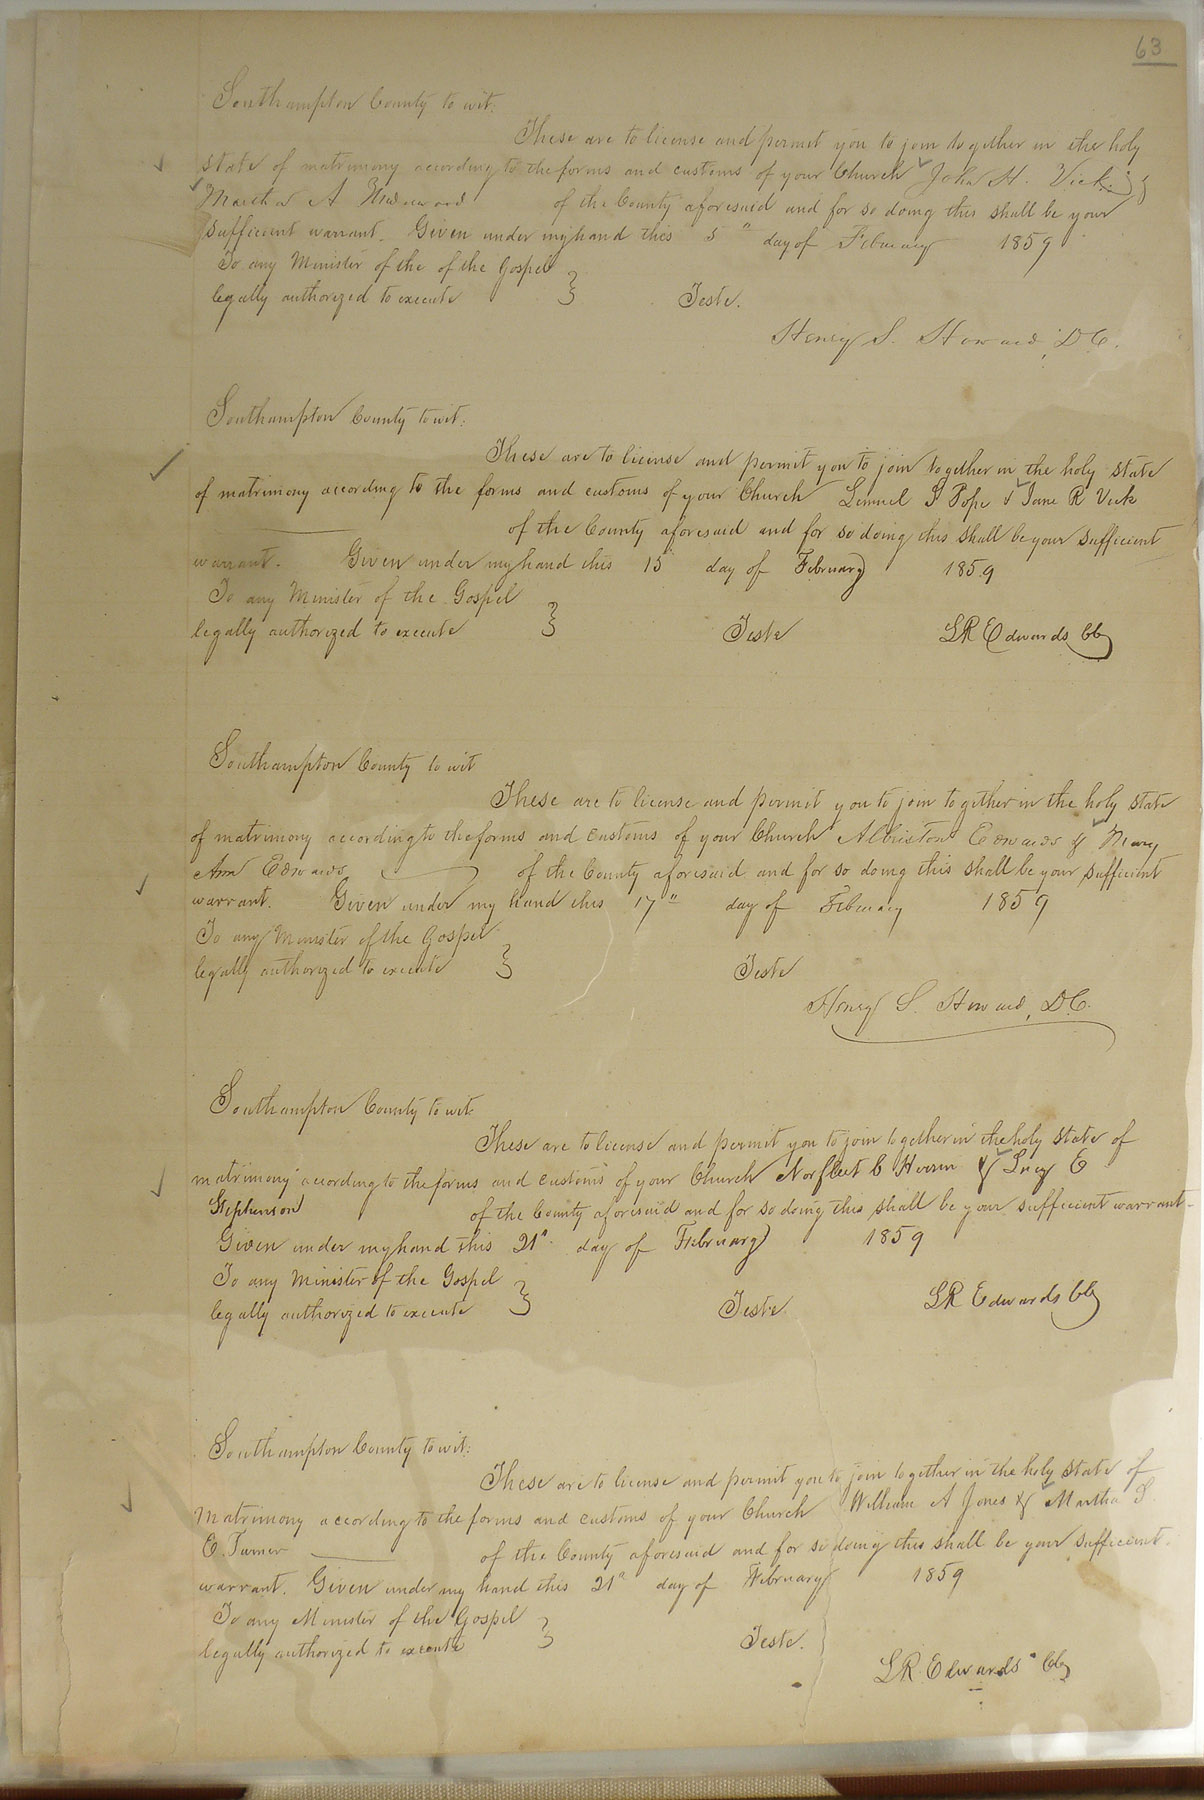 63
Southampton County to wit:
These are to license and permit you to join together in the holy
state of matrimony according to the forms and customs of your Church John H. Vick &
Martha A of the County aforesaid and for so doing this shall be your
sufficient warrant. Given under my hand this 5" day of February 1859
To any Minister of the of the Gospel
legally authorized to execute } Teste.
Henry S. Howard, D.C.
Southampton County to wit:
These are to license and permit you to join together in the holy state
of matrimony according to the forms and customs of your Church Lemuel J Pope & Jane R Vick
of the County aforesaid and for so doing this shall be your sufficient
warrant. Given under my hand this 15 day of February 1859
To any Minister of the Gospel
legally authorized to execute } Teste LR Edwards Clk
Southampton County to wit
These are to license and permit you to join together in the holy state
of matrimony according to the forms and customs of your Church Albriston Edwards & Mary
Ann Edwards of the County aforesaid and for so doing this shall be your sufficient
warrant. Given under my hand this 17" day of February 1859
To any Minister of the Gospel
legally authorized to execute } Teste
Henry S. Howard, D.C.
Southampton County to wit
These are to license and permit you to join together in the holy state of
matrimony according to the forms and customs of your Church Norfleet C & Lucy E
Stephenson of the County aforesaid and for so doing this shall be your sufficient warrant-
Given under my hand this 21" day of February 1859
To any Minister of the Gospel
legally authorized to execute } Teste. LR Edwards Clk
Southampton County to wit:
These are to license and permit you to join together in the holy state of
Matrimony according to the forms and customs of your Church William A Jones & Martha S.
E. Turner of the County aforesaid and for so doing this shall be your sufficient.
warrant. Given under my hand this 21" day of February 1859
To any Minister of the Gospel
legally authorized to execute } Teste.
LR. Edwards Clk